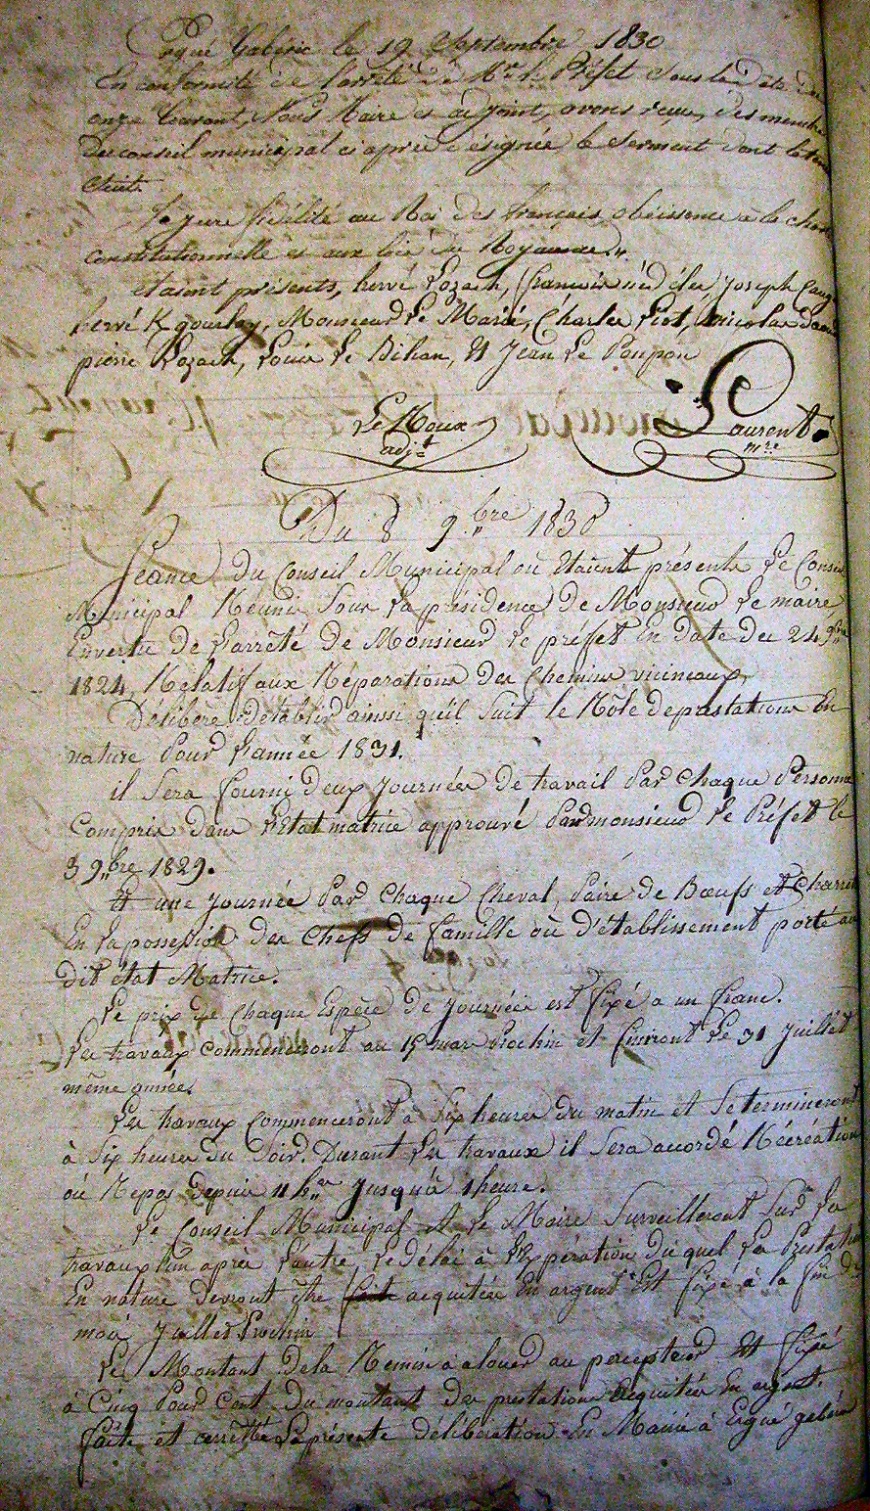 Ergué Gabéric le 19 Septembre 1830
En conformité de l'arrêté de Mr le Préfet sous la date du
onze Courant, Nous Maire et adjoint, avons reçu, des membres
du conseil municipal ci après désignée le serment dont la teneur
Suit.
Je jure fidélité au Roi des français, obéissance à la charte
constitutionnelle et aux lois du Royaume.
étaient présents, hervé Lozach, françois Joseph
hervé Kgourlay, Monsieur Le Marié, Charles Liot, Nicolas
pierre Lozach, Louis Le Bihan, Et Jean Le Poupon
Le Roux
adjt
Laurent
mre
Du 8 9.bre 1830
Séance du Conseil Municipal où Etaient présents Le Conseil
Municipal Réunis Sous La présidence De Monsieur Le maire
En vertu de L'arrêté De Monsieur Le préffet En date du 24 9bre
1824, Relatif aux Réparations des Chemins vicineaux,
Délibère d'établir ainsi qu'il Suit le Rôle de prestations En
nature Pour L'année 1831.
il Sera fourni deux Journées De travail Par Chaque Personne
Compris dans L'Etat matrice approuvé Par monsieur Le Préfet le
3 9.bre 1829.
Et une Journée Par Chaque Cheval, Paire de Bœufs et Charrette
En La possession des Chefs de famille où d'établissement porté au
dit état Matrice.
Le prix de Chaque Espèce de Journées est fixé a un franc.
Les travaux Commenceront au 15 mars Prochin et finiront Le 31 Juillet
même année.
Les travaux Commenceront à Six heures du matin et Se termineront
à Six heures du Soir. Durant Les travaux il Sera accordé Récréation
où Repos depuis 11 h.res Jusqu'à 1 heure.
Le Conseil Municipal Et Le Maire Surveilleront Sur Les
travaux l'un après L'autre, Le délai à L'Expération du quel La Prestation
En nature devront être fait acquitée En argent Est fixé à la fin de
mois Juillet Prochin
Le Montant De la Remise à alouer au percepteur Et fixé
à Cinq Pour Cent Du montant des prestations Acquitées En argent.
faite et arrêtté La présente délibération En Mairie à Ergué gabéric